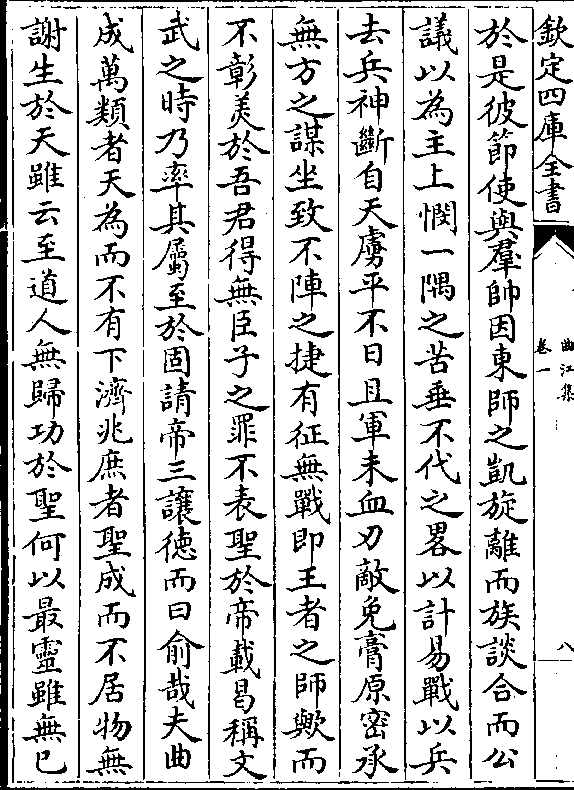 欽定四庫全書
曲江集
卷一
八
於是彼節使與羣帥因東師之凱旋離而族談合而公
議以為主上憫一隅之苦垂不代之畧以計易戰以兵
去兵神斷自天虜平不日且軍未血刃敵免膏原密承
無方之謀坐致不陣之捷有征無戰即王者之師歟而
不彰美於吾君得無臣子之罪不表聖於帝載曷稱文
武之時乃率其屬至於固請帝三讓德而曰俞哉夫曲
成萬類者天為而不有下濟兆庶者聖成而不居物無
謝生於天雖云至道人無歸功於聖何以最靈雖無已